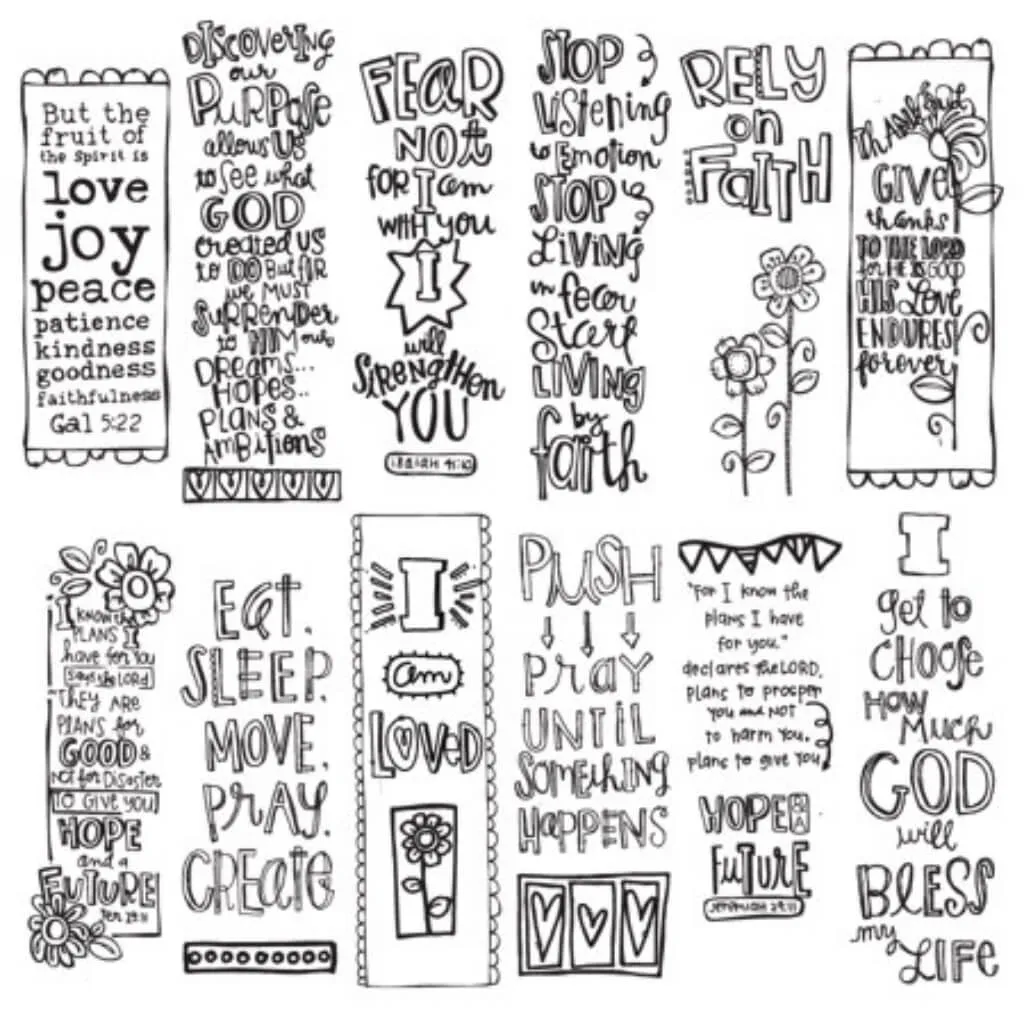 But the
fruit of
the spirit is
love
joy
peace
patience
kindness
goodness
faithfulness
Gal 5:22
DISCOVERING
our
PURPOSE
allows US
to see what
GOD
created US
to DO But FIR
we MUST
SURRENDER
to HIM our
DREAMS...
HOPES..
PLANS &
AMBITIONS
FEAR
NOT
FOR I am
WITH YOU
I
will
STRENGTHEN
YOU
ISAIAH 41:10
STOP
Listening
to Emotion
STOP
LIVING
in fear
Start
LIVING
by
faith
RELY
on
FAITH
GIVE
thanks
TO THE LORD
for HE IS GOOD
HIS Love
ENDURES
forever
I
KNOW the
PLANS I
have for You
says the LORD
"THEY ARE
PLANS for
GOOD &
NOT for DISASTER
TO GIVE YOU
HOPE
and a
FUTURE
Jer 29:11
EAT.
SLEEP.
MOVE.
PRAY.
CREATE
I
am
LOVED
PUSH
PRAY
UNTIL
SOMETHING
HAPPENS
"For I know the
plans I have
for you."
declares the LORD,
plans to prosper
you and NOT
to harm you,
plans to give you
HOPE & A
FUTURE
JEREMIAH 29:11
I
get to
CHOOSE
HOW
MUCH
GOD
will
BLESS
my
LIFE